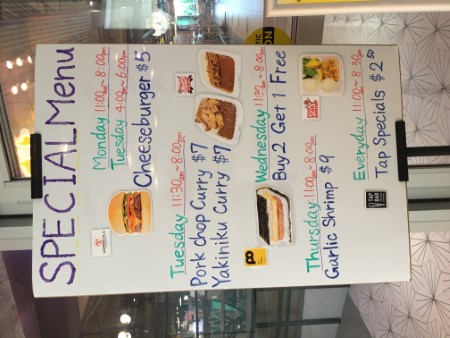 SPECIAL Menu
Monday 11:00am~8:00pm
Tuesday 4:00pm~6:00pm
Cheeseburger $5
Tuesday 11:30am~8:00pm
Pork chop Curry $7
Yakiniku Curry $7
Wednesday 11:30am~8:00pm
Buy 2 Get 1 Free
Thursday 11:00am~8:00pm
Garlic Shrimp $9
Everyday 11:00am~8:30pm
Tap Specials $2.50